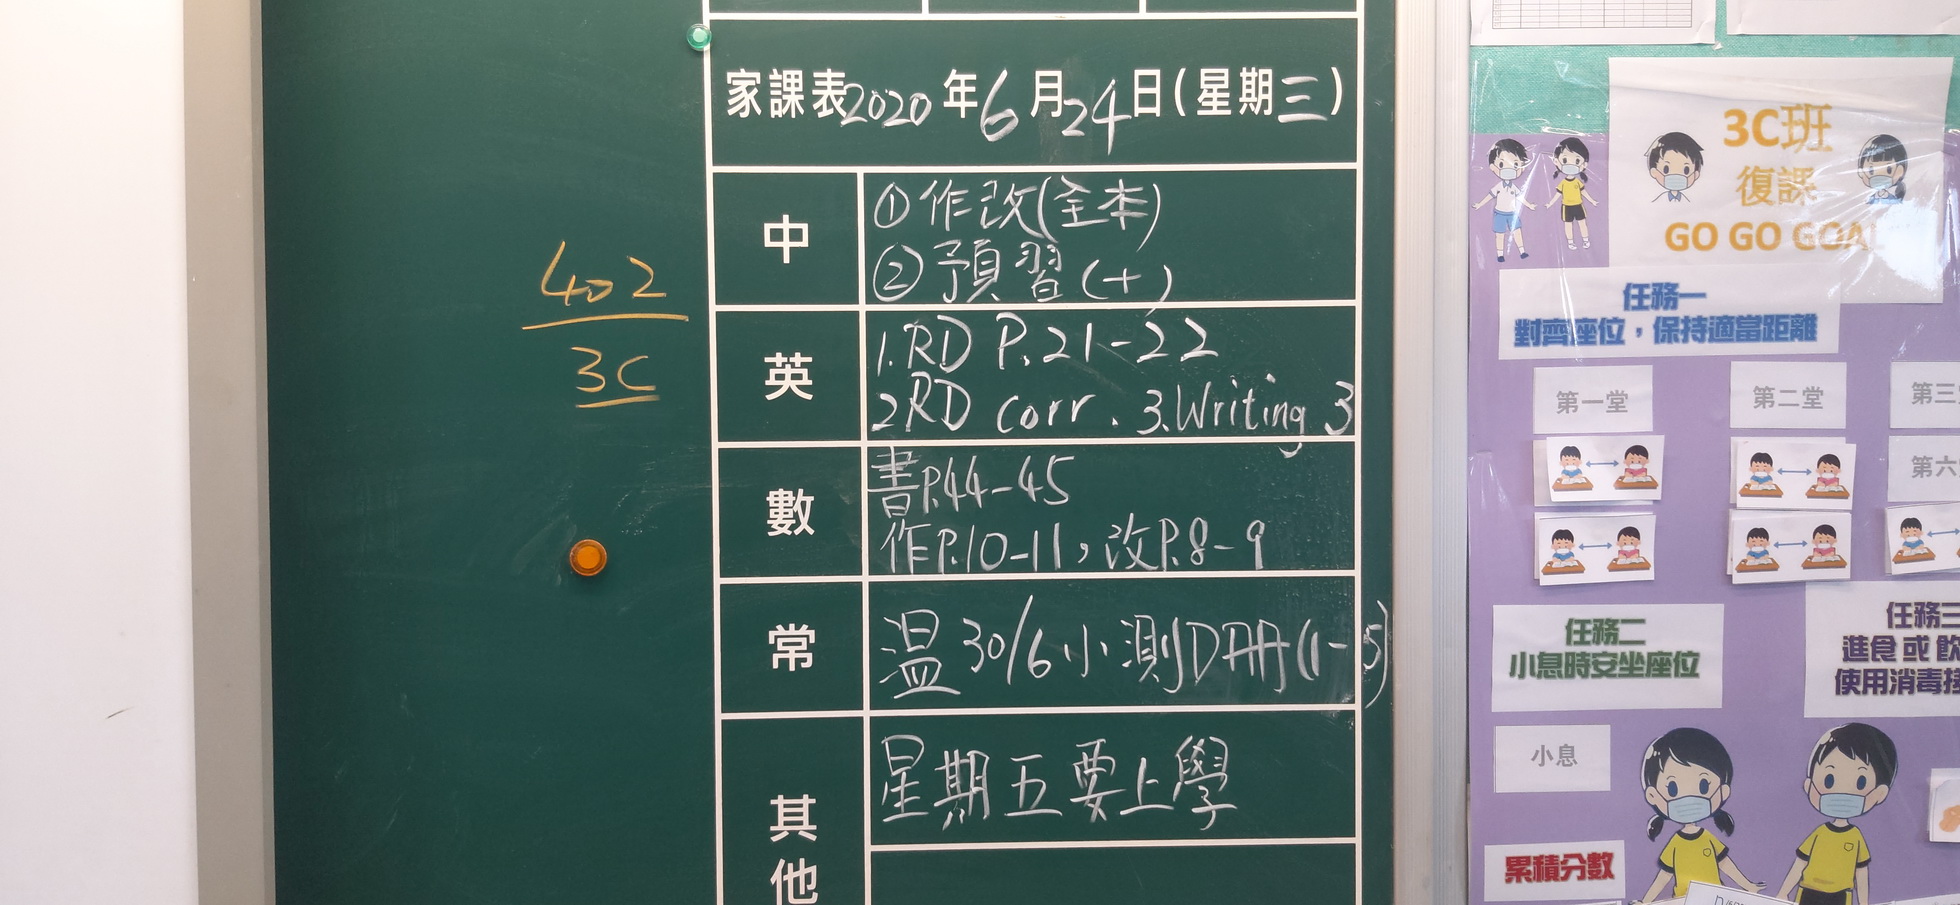 家課表2020年6月24日(星期三)
中
①作改(全本)
②預習(十)
英
1.RD P.21-22
2RD corr. 3.Writing 3
數
書P.44-45
作P.10-11，改P.8-9
常
温30/6小測D冊(1-5)
其他
星期五要上學
402
3C
3C班
復課
GO GO GOAL
任務一
對齊座位，保持適當距離
第一堂
第二堂
第三
第六
任務二
小息時安坐座位
任務三
進食或飲
使用消毒
小息
累積分數